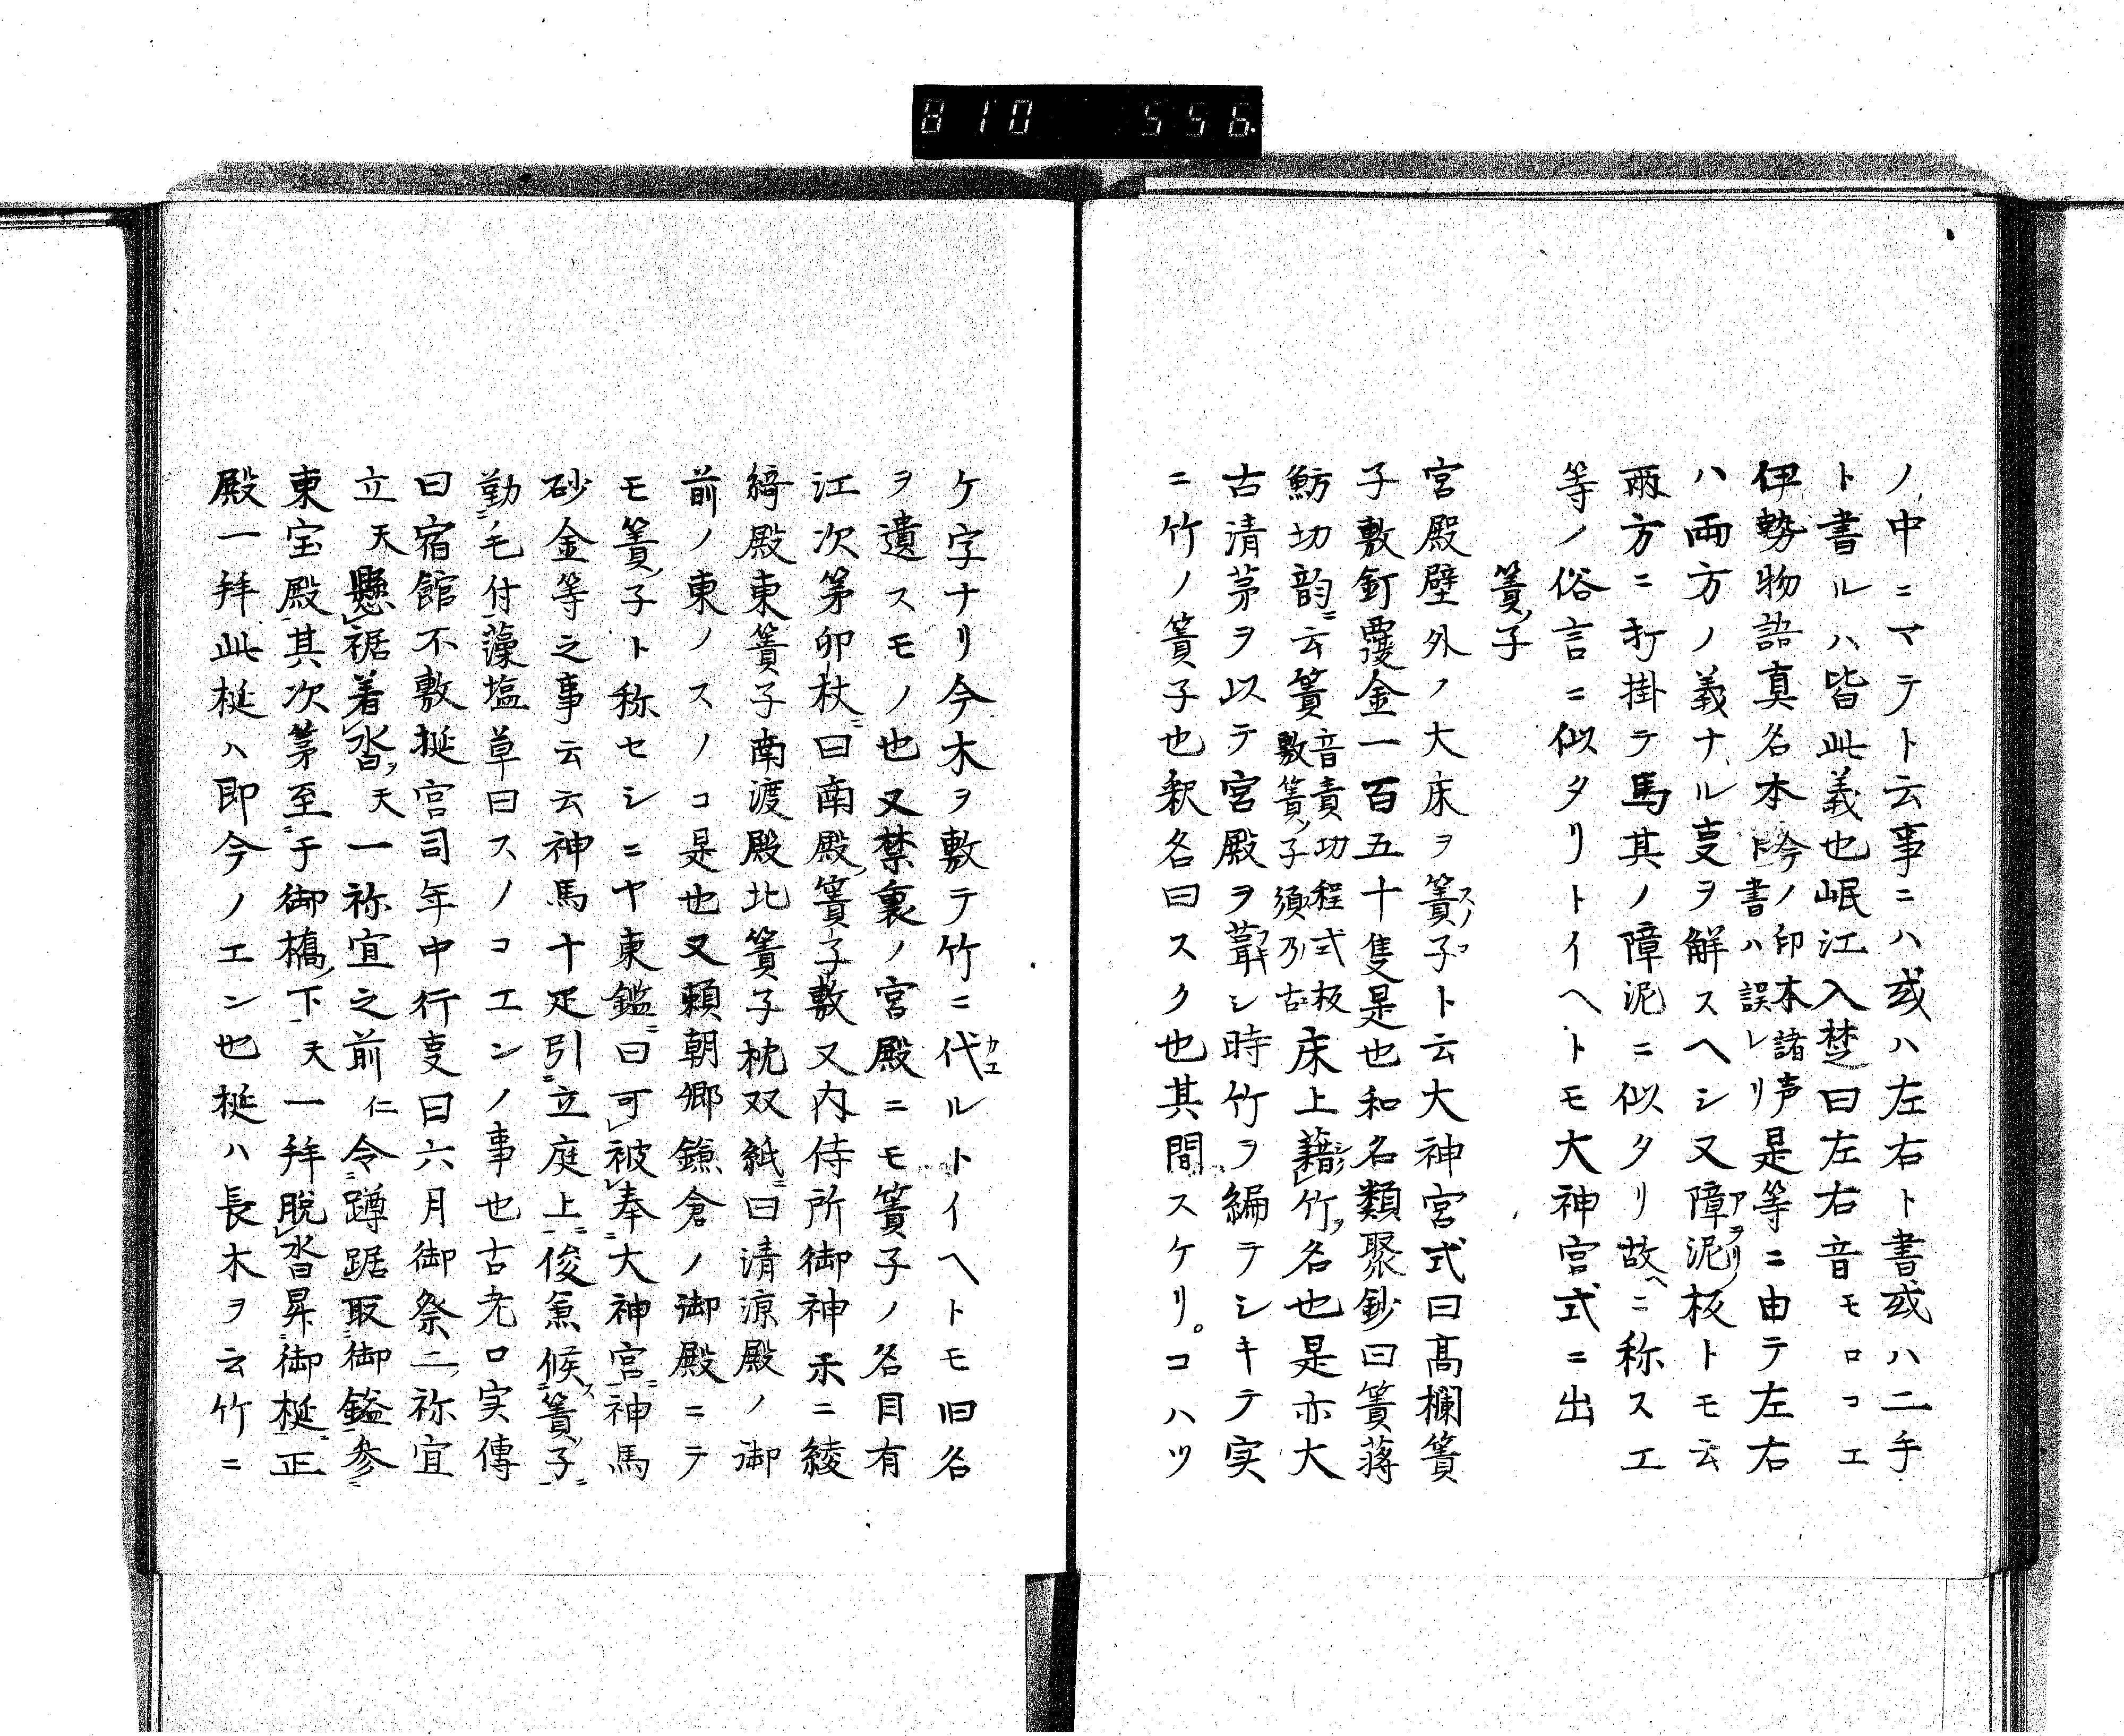 810 556
ノ中ニマテト云事ニハ或ハ左右ト書或ハ二手
ト書ルハ皆此義也岷江入楚曰左右音モロコエ
伊勢物語真名本今ノ印本諸声ト書ハ誤レリ是等ニ由テ左右
ハ両方ノ義ナル㕝ヲ解スヘシ又障泥板トモ云
兩方ニ打掛テ馬其ノ障泥ニ似タリ故ニ称スエ
等ノ俗言ニ似タリトイヘトモ大神宮式ニ出
簀子
宮殿壁外ノ大床ヲ簀子ト云大神宮式曰高欄簀
子敷釘覆金一百五十隻是也和名類聚鈔曰簀蒋
魴切韵云簀音責功程式板敷簀子須乃古床上藉竹名也是亦大
古清茅ヲ以テ宮殿ヲ葺シ時竹ヲ編テシキテ実
ニ竹ノ簀子也釈名曰スク也其間スケリ。コハツ
ケ字ナリ今木ヲ敷テ竹ニ代ルトイヘトモ旧名
ヲ遺スモノ也又禁裏ノ宮殿ニモ簀子ノ名目有
江次第卯杖曰南殿簀子敷又内侍所御神楽ニ綾
綺殿東簀子南渡殿北簀子枕双紙曰清涼殿ノ御
前ノ東ノスノコ是也又頼朝郷鎌倉ノ御殿ニテ
モ簀子ト称セシニヤ東鑑曰可被奉大神宮神馬
砂金等之事云云神馬十疋引立庭上俊兼候簀子
勤毛付藻塩草曰スノコエンノ事也古老口実傳
曰宿館不敷梴宮司年中行㕝曰六月御祭二祢宜
立天懸裾着沓天一祢宜之前仁令蹲踞取御鎰参
東宝殿其次第至于御橋下天一拜脱沓昇御梴正
殿一拜此梴ハ即今ノエン也梴ハ長木ヲ云竹ニ